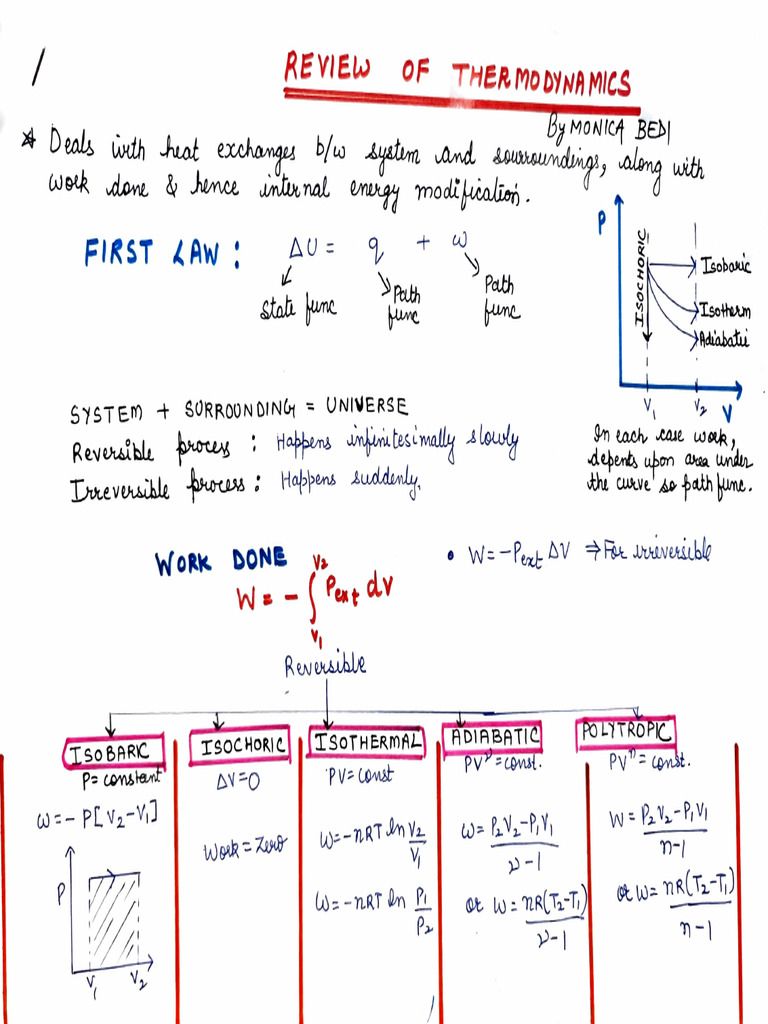 REVIEW OF THERMODYNAMICS
By MONICA BEDI
* Deals with heat exchanges b/w system and sourroundings, along with
work done & hence internal energy modification.
FIRST LAW : ΔU = q + w
State func
Path func
Path func
P
ISOCHORIC
Isobaric
Isotherm
Adiabatic
V₁ V₂ V
In each case work,
depents upon area under
the curve so path func.
SYSTEM + SURROUNDING = UNIVERSE
Reversible process : Happens infinitesimally slowly
Irreversible process : Happens suddenly.
WORK DONE
W = - ∫_{V₁}^{V₂} P_ext dV
• W = -P_ext ΔV ⇒ For irreversible
Reversible
ISOBARIC
P = constant
W = - P[V₂-V₁]
P
V₁ V₂
ISOCHORIC
ΔV = 0
Work = Zero
ISOTHERMAL
PV = Const
W = -nRT ln V₂/V₁
W = -nRT ln P₁/P₂
ADIABATIC
PV^ν = const.
W = P₂V₂-P₁V₁/ν-1
or W = nR(T₂-T₁)/ν-1
POLYTROPIC
PVⁿ = const.
W = P₂V₂-P₁V₁/n-1
or W = nR(T₂-T₁)/n-1